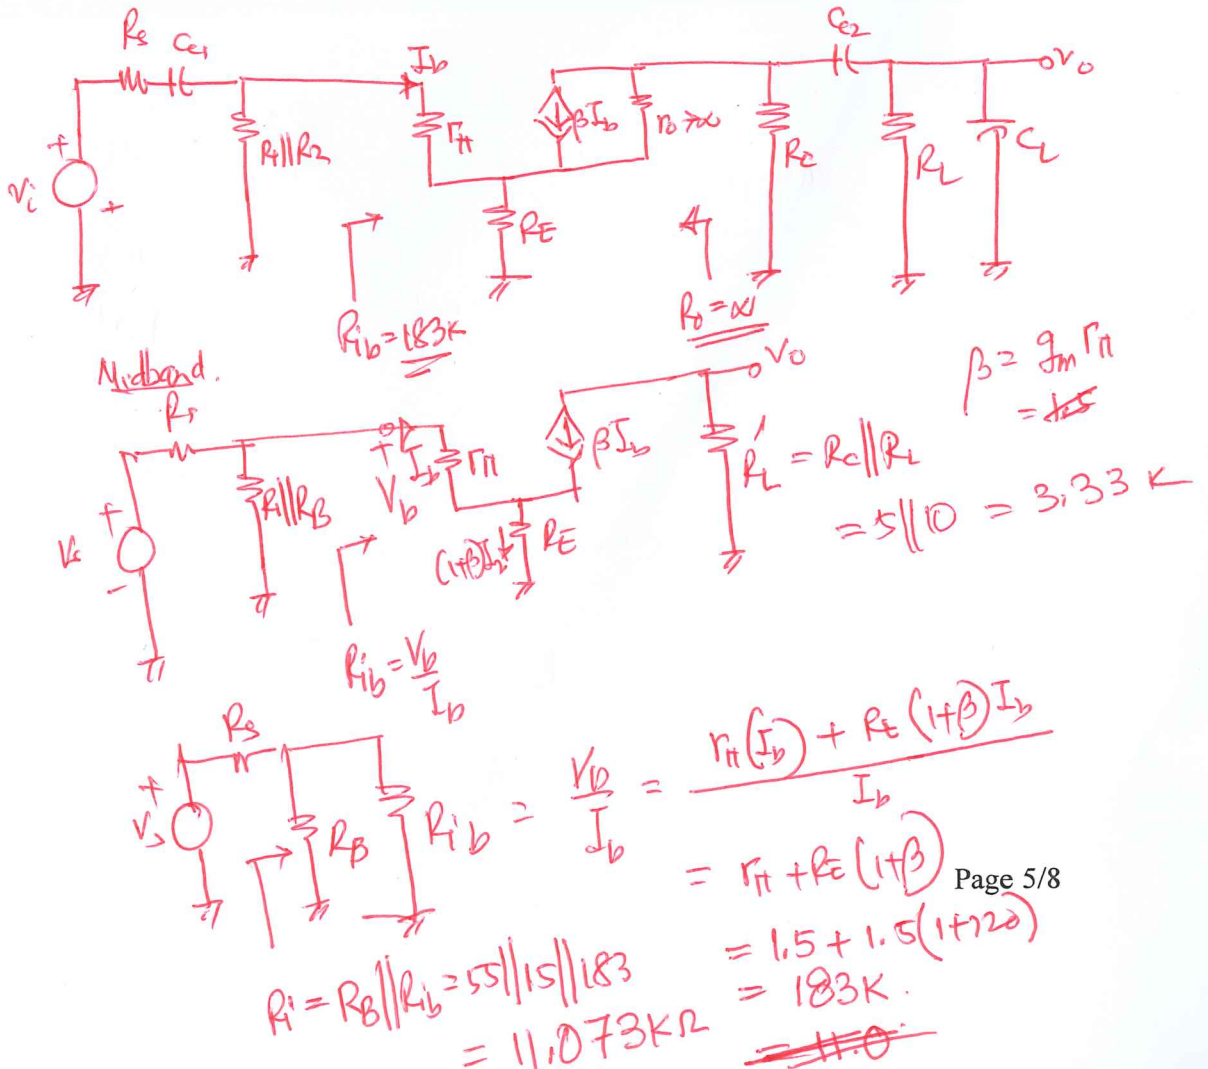 Rs Cc1 Ib Cc2 vo
vi + + R1||R2 rπ βIb ro→∞ RC RL CL
RE
Rib=183K Ro=∞
Midband.
Rs Vo β= gm rπ
= 1.5
Vs + - R1||RB + Vb Ib rπ βIb RL' = RC||RL
= 5||10 = 3.33 K
(1+β)Ib RE
Rib=Vb/Ib
Rs
Vs + RB Rib = Vb/Ib = (rπ(Ib) + RE(1+β)Ib)/Ib
= rπ+RE(1+β)
Page 5/8
= 1.5+1.5(1+120)
Ri=RB||Rib=55||15||183
= 183K.
= 11.073KΩ
= 11.0